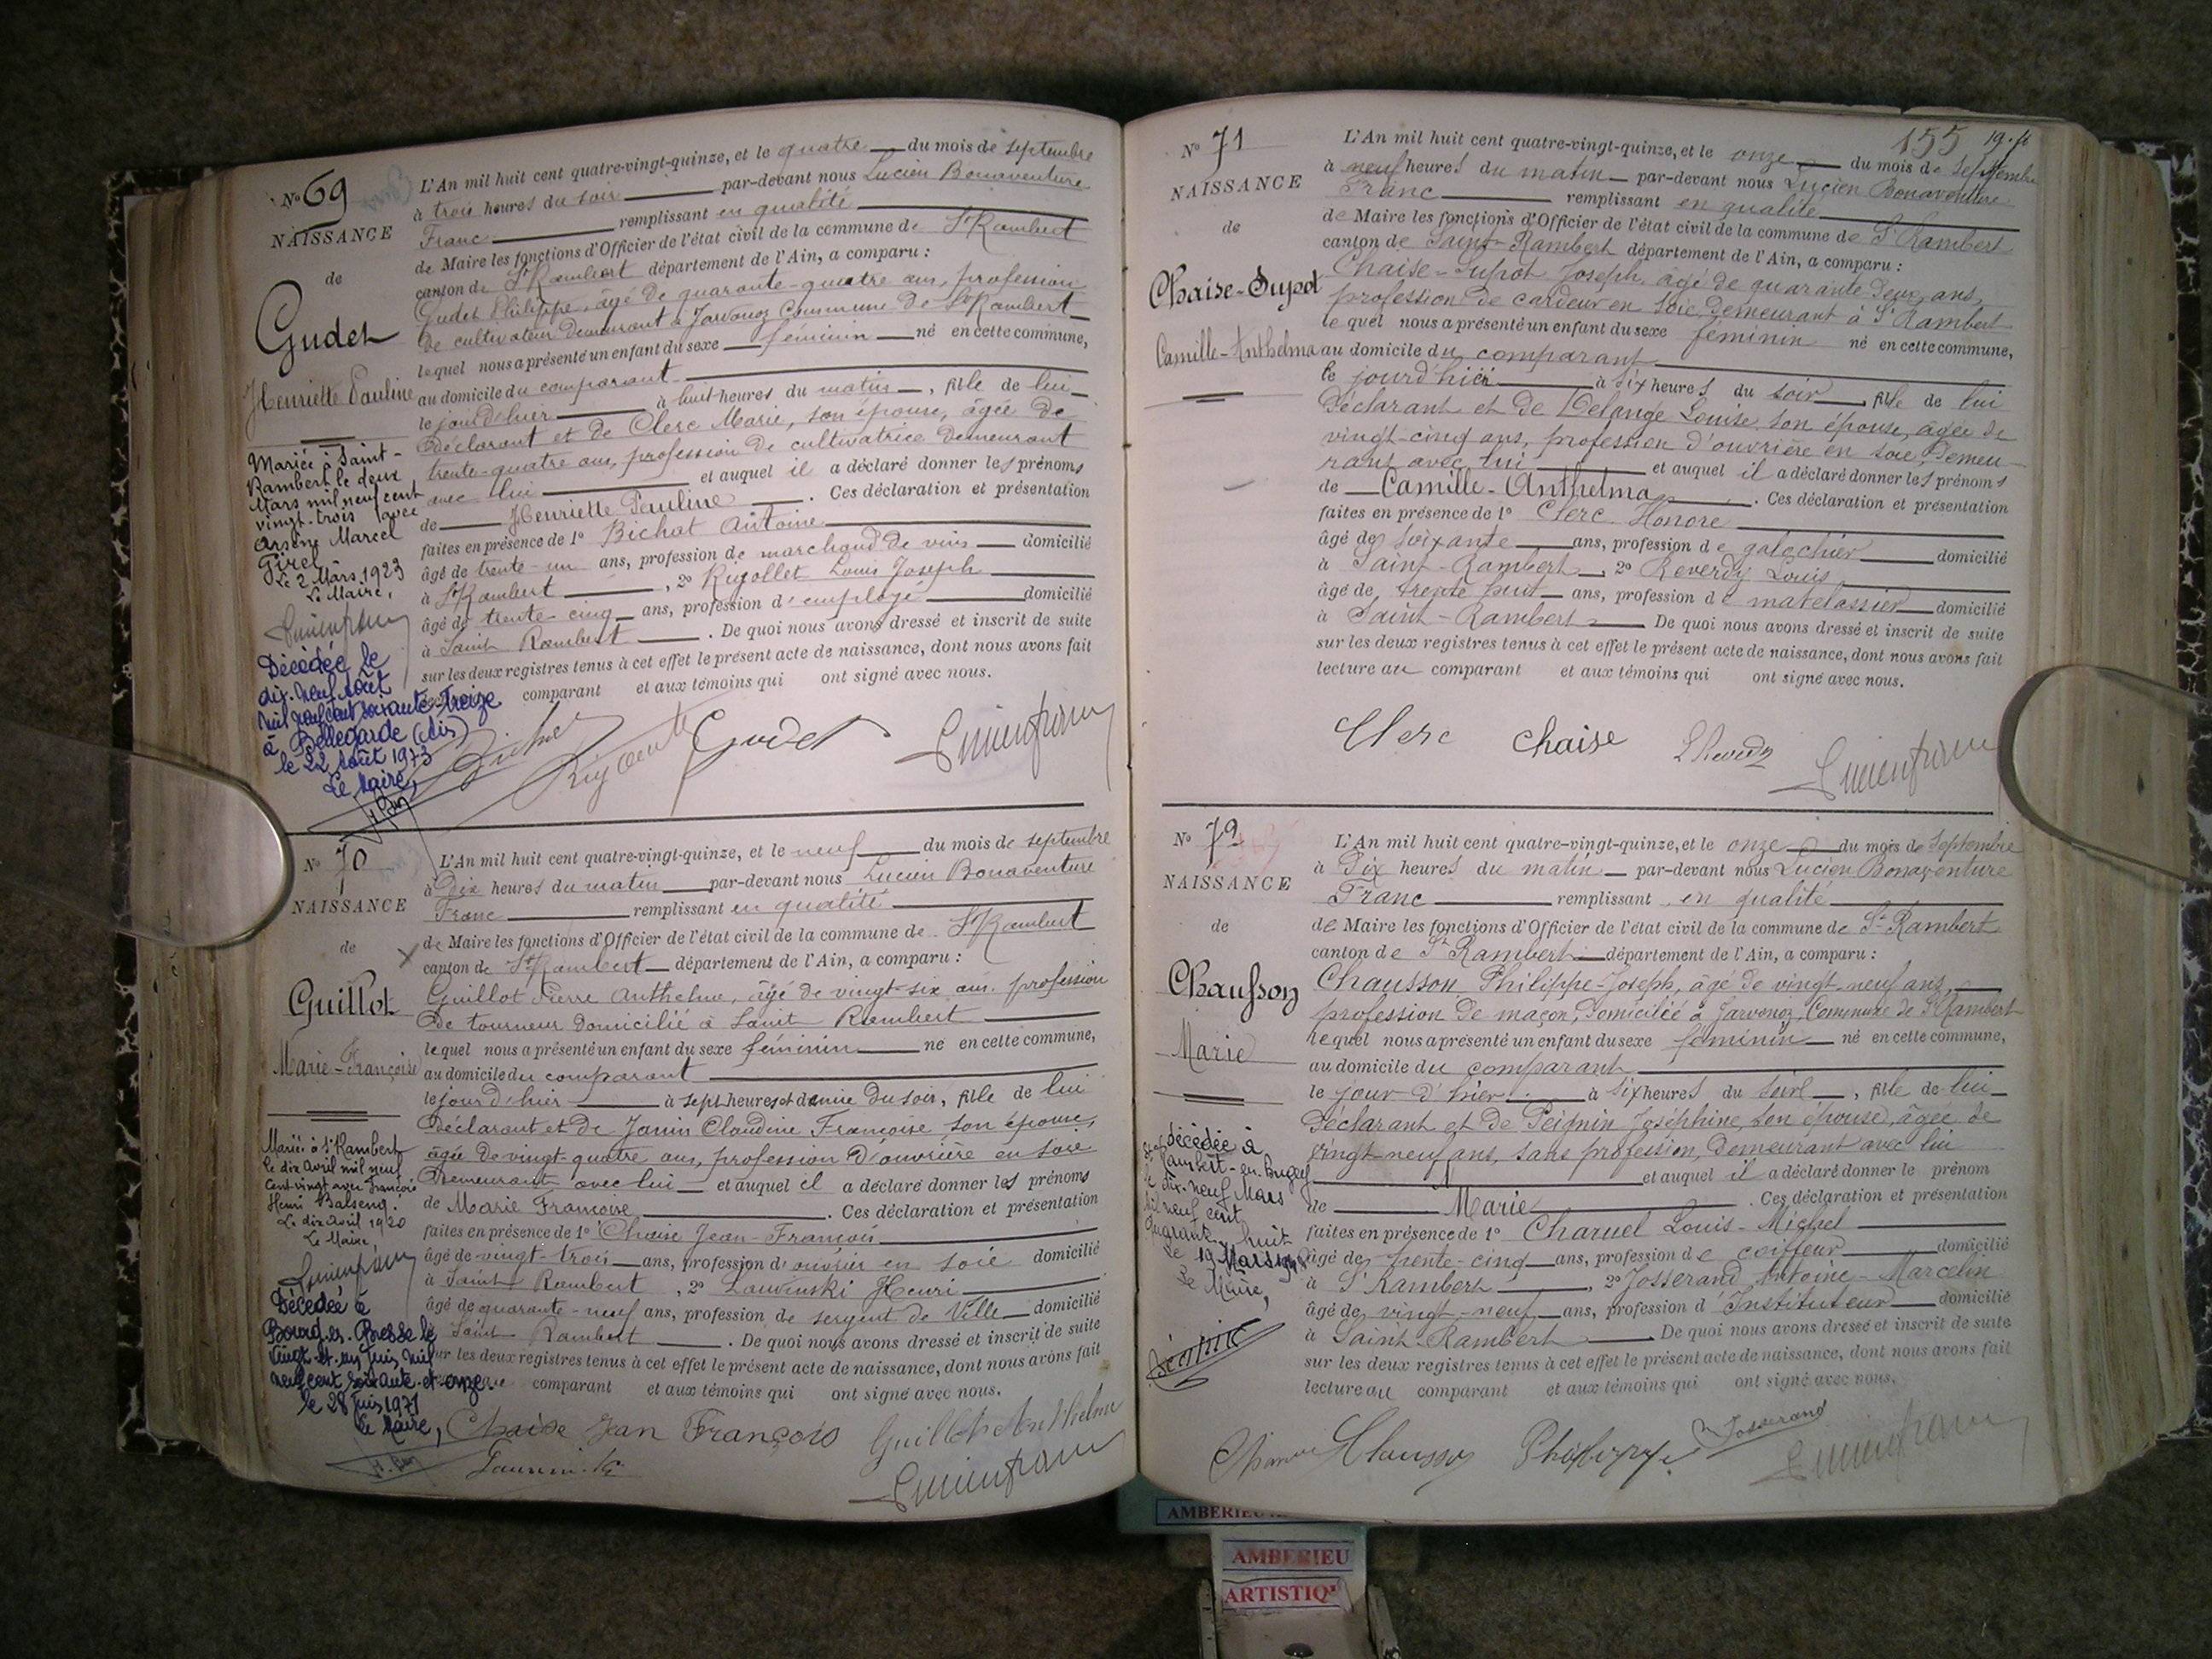 No 69
NAISSANCE
de
Gudet
Henriette Pauline
Mariée à Saint-
Rambert le deux
Mars mil neuf cent
vingt-trois avec
Arsène Marcel
Girel
Le 2 Mars 1923
Le Maire,
Décédée le
dix-neuf Août
mil neuf cent soixante-treize
à Bellegarde (Ain)
le 22 Août 1973
Le Maire,
L'An mil huit cent quatre-vingt-quinze, et le quatre du mois de septembre
à trois heures du soir par-devant nous Lucien Bonaventure
Franc remplissant en qualité
de Maire les fonctions d'Officier de l'état civil de la commune de St Rambert
canton de St Rambert département de l'Ain, a comparu :
Gudet Philippe, âgé de quarante-quatre ans, profession
de cultivateur demeurant à Javornoz Commune de St Rambert
lequel nous a présenté un enfant du sexe féminin né en cette commune,
au domicile du comparant
le jour d'hier à huit heures du matin, fille de lui
déclarant et de Clerc Marie, son épouse, âgée de
trente-quatre ans, profession de cultivatrice demeurant
avec lui et auquel il a déclaré donner les prénoms
de Henriette Pauline. Ces déclaration et présentation
faites en présence de 1o Bichat Antoine
âgé de trente-un ans, profession de marchand de vins domicilié
à St Rambert, 2o Rigollet Louis Joseph
âgé de trente cinq ans, profession d'employé domicilié
à Saint Rambert. De quoi nous avons dressé et inscrit de suite
sur les deux registres tenus à cet effet le présent acte de naissance, dont nous avons fait
comparant et aux témoins qui ont signé avec nous.
Gudet Lucien franc
No 70
NAISSANCE
de
Guillot
Marie-Françoise
Mariée à St Rambert
le dix Avril mil neuf
cent vingt avec François
Henri Balseng.
Le dix Avril 1920
Le Maire
Décédée à
Bourg-en-Bresse le
vingt-et-un Juin mil
neuf cent soixante-et-onze.
le 28 Juin 1971
Le Maire,
L'An mil huit cent quatre-vingt-quinze, et le neuf du mois de septembre
à Dix heures du matin par-devant nous Lucien Bonaventure
Franc remplissant en qualité
de Maire les fonctions d'Officier de l'état civil de la commune de St Rambert
canton de St Rambert département de l'Ain, a comparu :
Guillot Pierre Anthelme, âgé de vingt-six ans, profession
de tourneur domicilié à Saint Rambert
lequel nous a présenté un enfant du sexe féminin né en cette commune,
au domicile du comparant
le jour d'hier à sept heures et demie du soir, fille de lui
déclarant et de Janin Claudine Françoise son épouse,
âgée de vingt quatre ans, profession d'ouvrière en soie
demeurant avec lui et auquel il a déclaré donner les prénoms
de Marie Françoise. Ces déclaration et présentation
faites en présence de 1o Chaise Jean-François
âgé de vingt-trois ans, profession d'ouvrier en soie domicilié
à Saint Rambert, 2o Henri
âgé de quarante-neuf ans, profession de sergent de Ville domicilié
Saint Rambert. De quoi nous avons dressé et inscrit de suite
sur les deux registres tenus à cet effet le présent acte de naissance, dont nous avons fait
comparant et aux témoins qui ont signé avec nous.
Chaise Jean François Guillot Anthelme
Lucien franc
155
No 71
NAISSANCE
de
Chaise-Supot
Camille-Anthelma
L'An mil huit cent quatre-vingt-quinze, et le onze du mois de Septembre
à neuf heures du matin par-devant nous Lucien Bonaventure
Franc remplissant en qualité
de Maire les fonctions d'Officier de l'état civil de la commune de St Rambert
canton de Saint-Rambert département de l'Ain, a comparu :
Chaise-Supot Joseph, âgé de quarante-deux ans,
profession de cardeur en soie, demeurant à St Rambert
lequel nous a présenté un enfant du sexe féminin né en cette commune,
au domicile du comparant
le jour d'hier à six heures du soir, fille de lui
déclarant et de Delange Louise, son épouse, âgée de
vingt-cinq ans, profession d'ouvrière en soie, demeu-
rant avec lui et auquel il a déclaré donner les prénoms
de Camille-Anthelma. Ces déclaration et présentation
faites en présence de 1o Clerc Honoré
âgé de soixante ans, profession de galochier domicilié
à Saint-Rambert, 2o Reverdy Louis
âgé de trente huit ans, profession de matelassier domicilié
à Saint-Rambert. De quoi nous avons dressé et inscrit de suite
sur les deux registres tenus à cet effet le présent acte de naissance, dont nous avons fait
lecture au comparant et aux témoins qui ont signé avec nous.
Clerc chaise Lucien franc
No 72
NAISSANCE
de
Chausson
Marie
décédée à
St
Rambert-en-Bugey
le dix-neuf Mars
mil neuf cent
quarante-huit
Le 19 Mars 1948
Le Maire,
L'An mil huit cent quatre-vingt-quinze, et le onze du mois de Septembre
à Dix heures du matin par-devant nous Lucien Bonaventure
Franc remplissant en qualité
de Maire les fonctions d'Officier de l'état civil de la commune de St Rambert
canton de St Rambert département de l'Ain, a comparu :
Chausson Philippe-Joseph, âgé de vingt-neuf ans,
profession de maçon, domicilié à Javornoz, Commune de St Rambert
lequel nous a présenté un enfant du sexe féminin né en cette commune,
au domicile du comparant
le jour d'hier à six heures du soir, fille de lui
déclarant et de Peignin Joséphine, son épouse, âgée de
vingt-neuf ans, sans profession, demeurant avec lui
et auquel il a déclaré donner le prénom
de Marie. Ces déclaration et présentation
faites en présence de 1o Charvel Louis-Michel
âgé de trente-cinq ans, profession de coiffeur domicilié
à St Rambert, 2o Josserand Antoine-Marcelin
âgé de vingt-neuf ans, profession d'Instituteur domicilié
à Saint-Rambert. De quoi nous avons dressé et inscrit de suite
sur les deux registres tenus à cet effet le présent acte de naissance, dont nous avons fait
lecture au comparant et aux témoins qui ont signé avec nous.
Chausson Philippe Josserand Lucien franc
AMBERIEU
AMBERIEU
ARTISTIQ